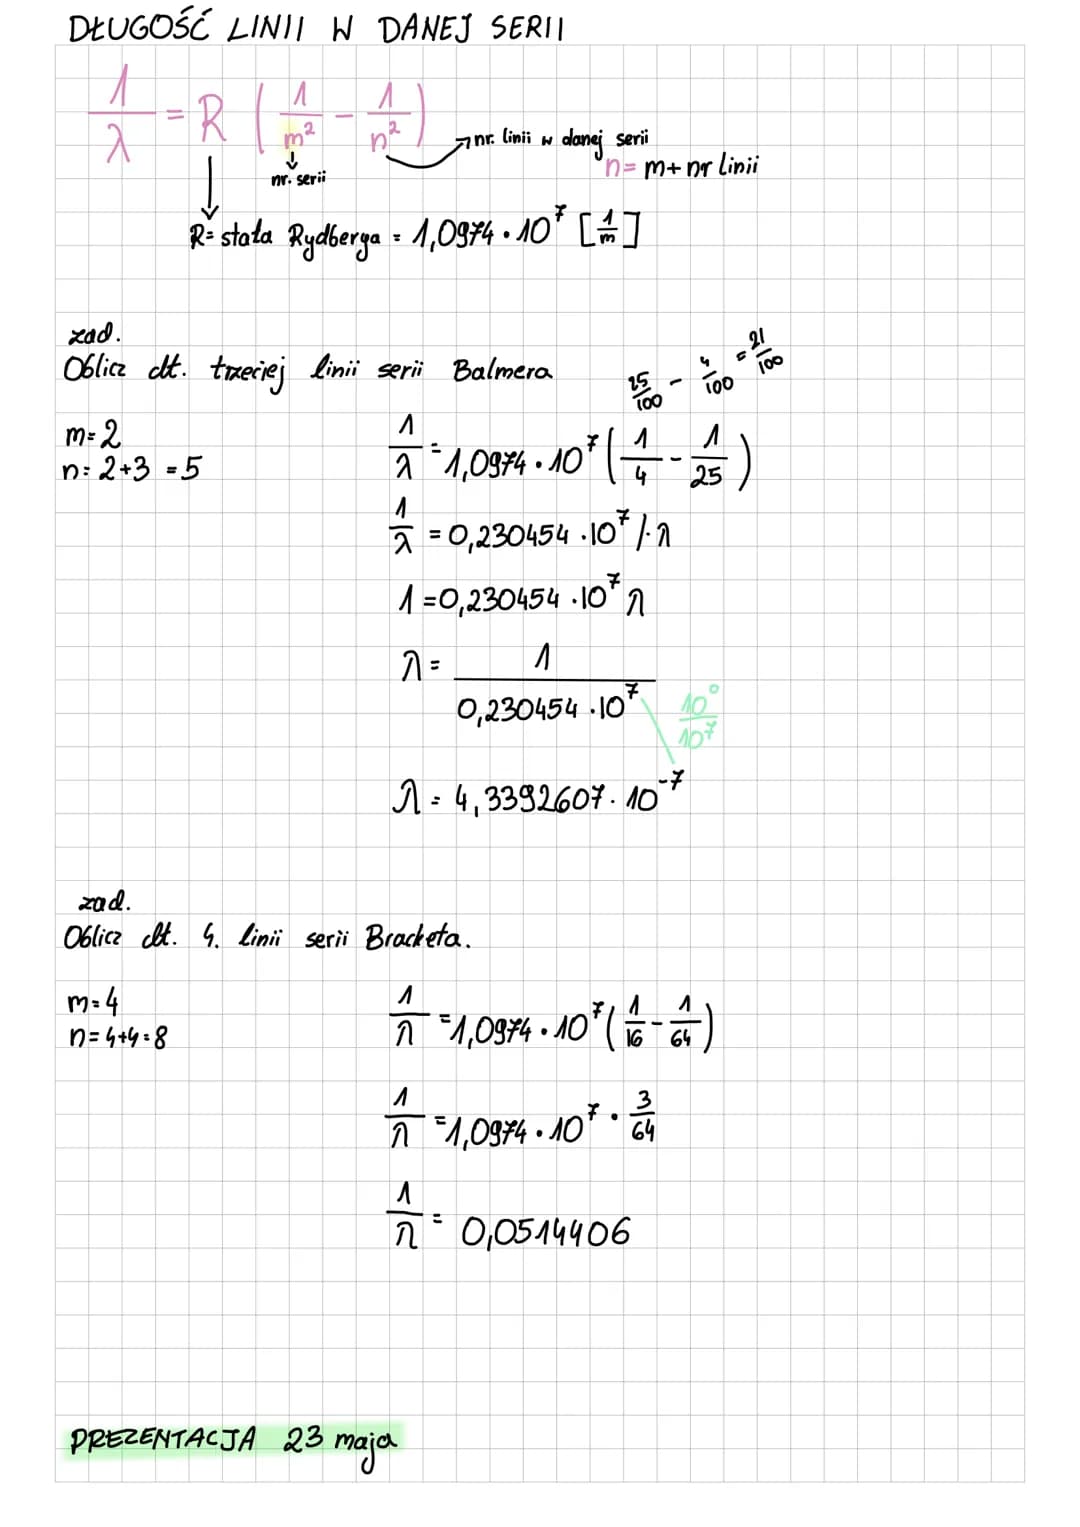 DŁUGOŚĆ LINII W DANEJ SERII
1/λ = R (1/m² - 1/n²)
nr. serii
nr. linii w danej serii
n = m + nr linii
R = stała Rydberga = 1,0974 · 10⁷ [1/m]
zad.
Oblicz dł. trzeciej linii serii Balmera
25/100 - 4/100 = 21/100
m = 2
n = 2+3 = 5
1/λ = 1,0974 · 10⁷ (1/4 - 1/25)
1/λ = 0,230454 · 10⁷ /· λ
1 = 0,230454 · 10⁷ λ
λ = 1/(0,230454 · 10⁷)
10⁰/10⁷
λ = 4,3392607 · 10⁻⁷
zad.
Oblicz dł. 4. linii serii Bracketa.
m = 4
n = 4+4 = 8
1/λ = 1,0974 · 10⁷ (1/16 - 1/64)
1/λ = 1,0974 · 10⁷ · 3/64
1/λ = 0,0514406
PREZENTACJA 23 maja